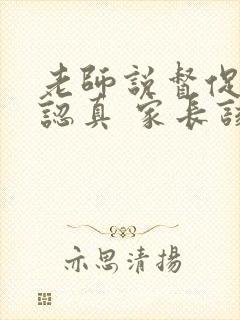 老師說督促
認真 家長該
亦思清揚